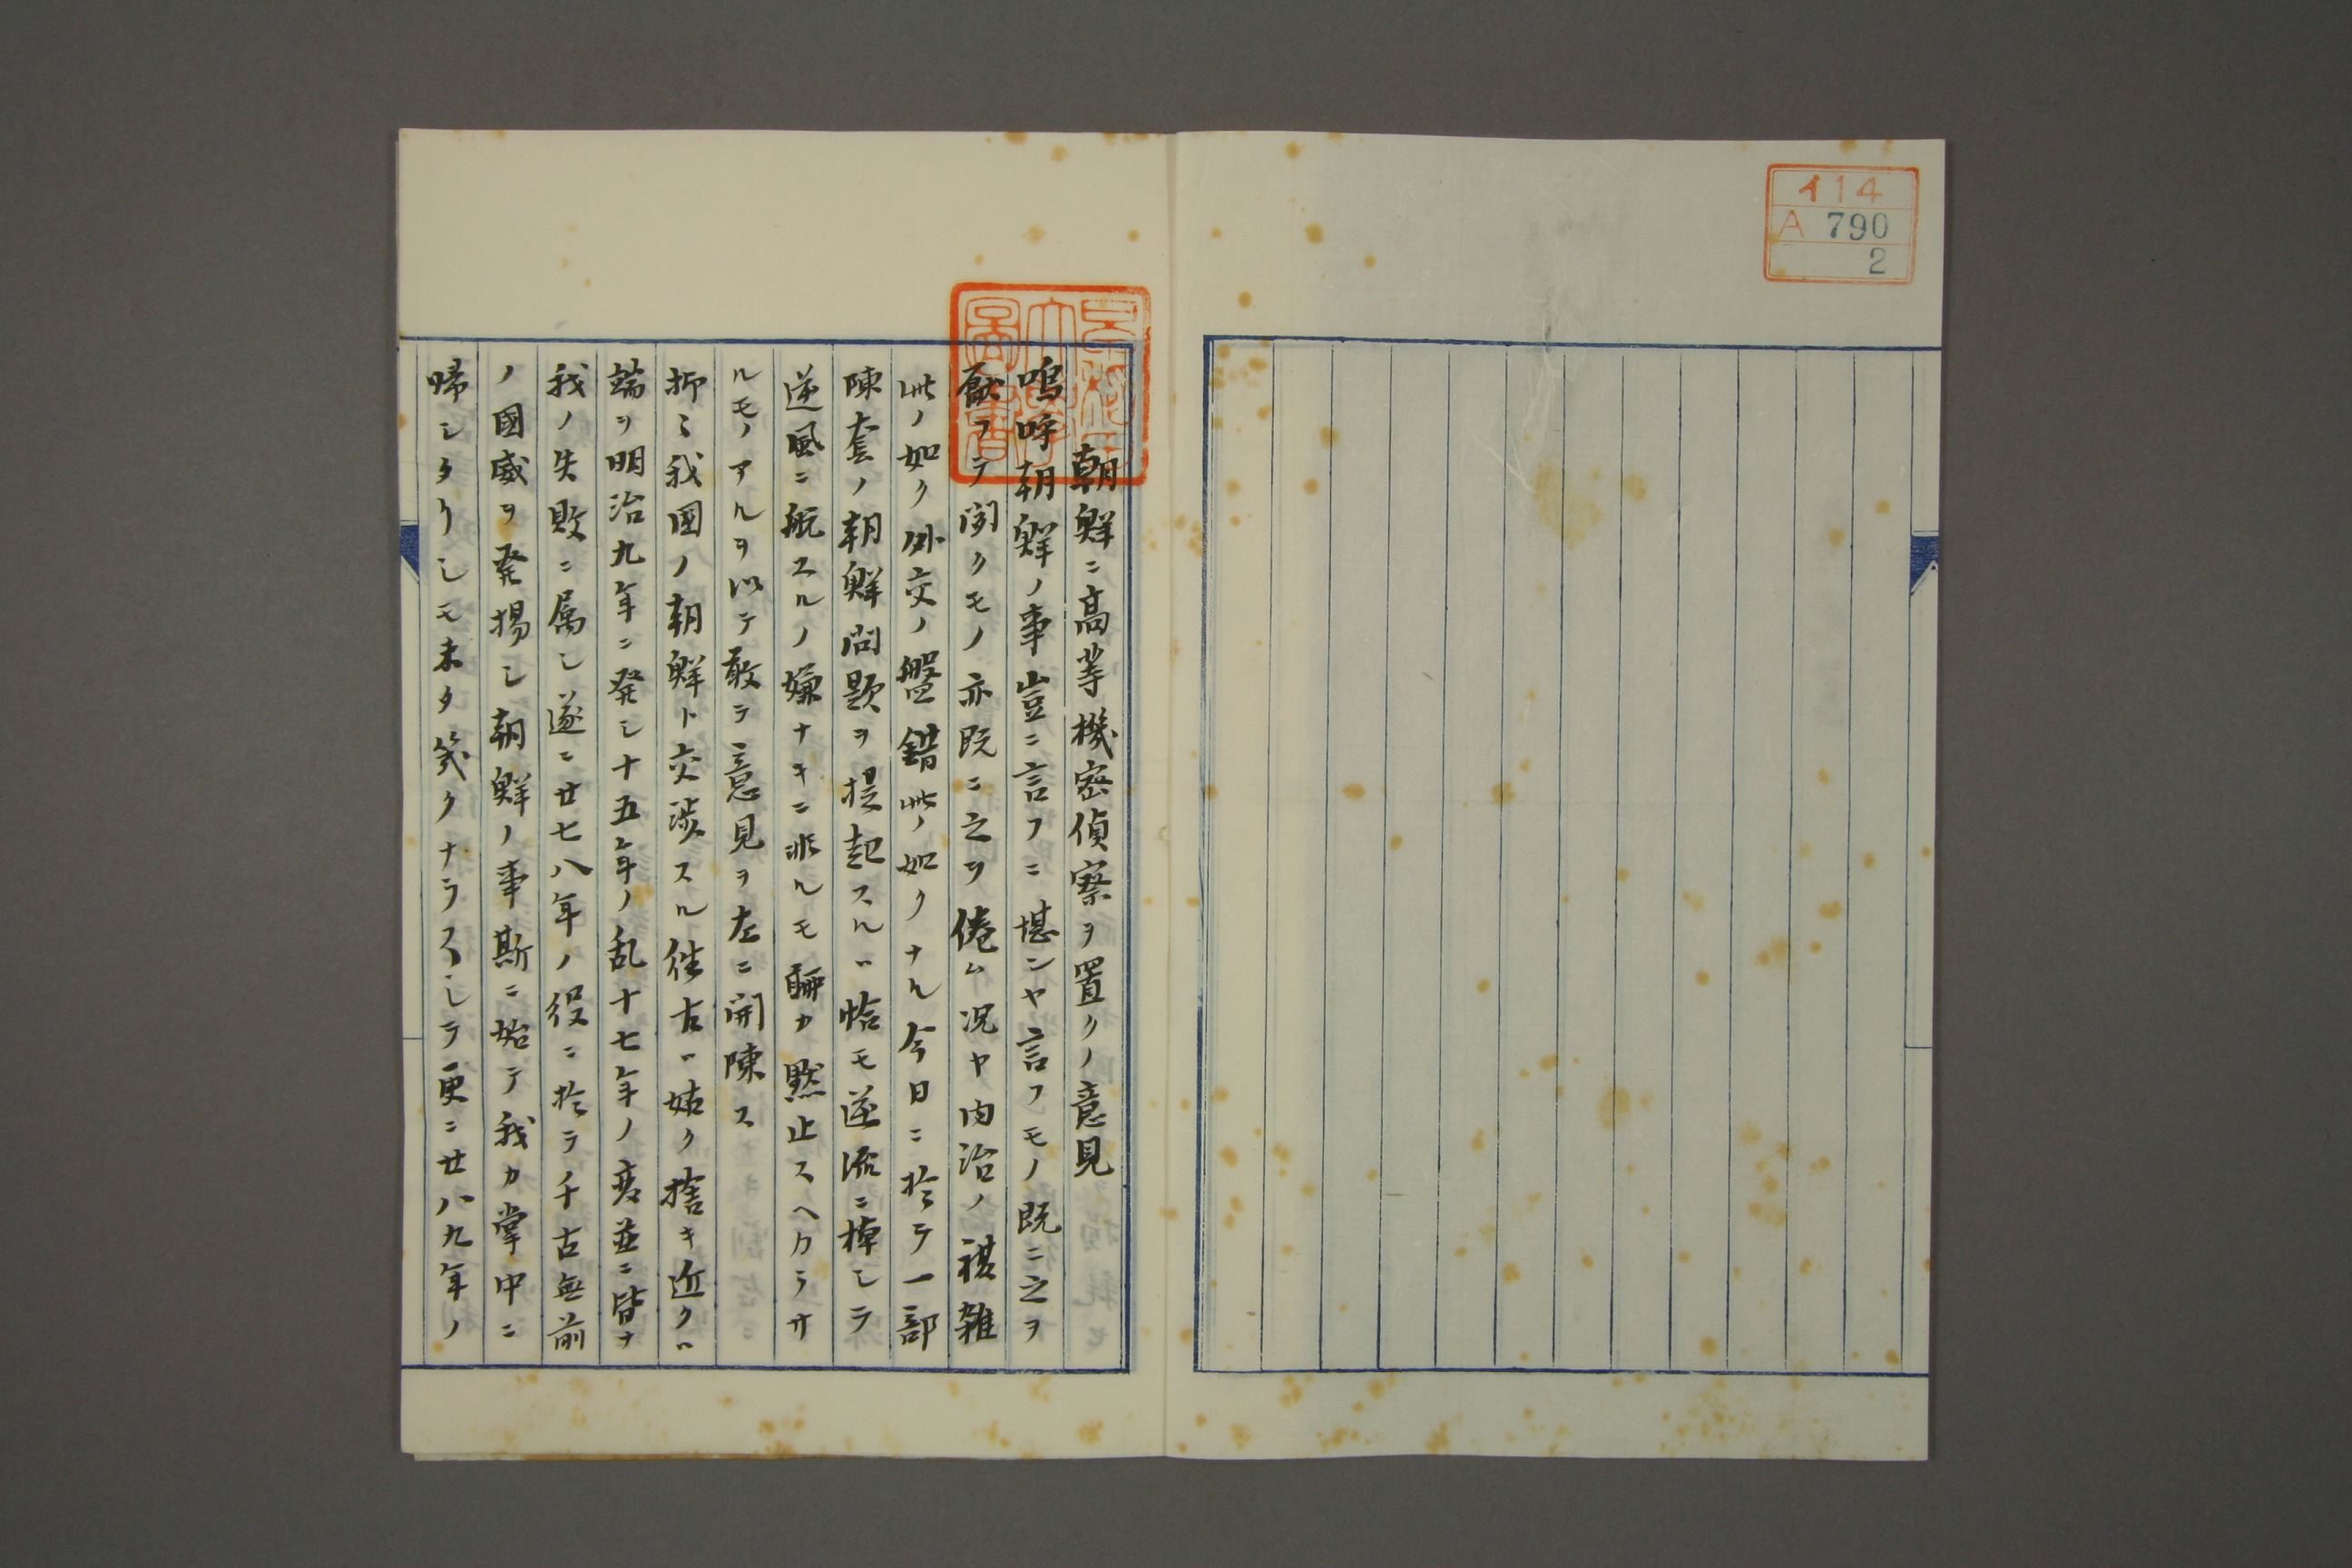 イ14
A 790
2
朝鮮ニ高等機密偵察ヲ置クノ意見
嗚呼朝鮮ノ事豈ニ言フニ堪ンヤ言フモノ既ニ之ヲ
厭フテ聞クモノ亦既ニ之ヲ倦ム况ヤ内治ノ複雑
此ノ如ク外交ノ盤錯此ノ如クナル今日ニ於テ一部
陳套ノ朝鮮問題ヲ提起スルハ恰モ逆流ニ棹シテ
逆風ニ航スルノ嫌ナキニ非ルモ聊カ黙止スヘカラサ
ルモノアルヲ以テ敢テ意見ヲ左ニ開陳ス
抑ミ我國ノ朝鮮ト交渉スル徃古ハ姑ク捨キ近クハ
端ヲ明治九年ニ発シ十五年ノ乱十七年ノ変並ニ皆ナ
我ノ失敗ニ属シ遂ニ廿七八年ノ役ニ於テ千古無前
ノ國威ヲ発揚シ朝鮮ノ事斯ニ始テ我カ掌中ニ
帰シタリシモ未タ幾クナラスシテ更ニ廿八九年ノ